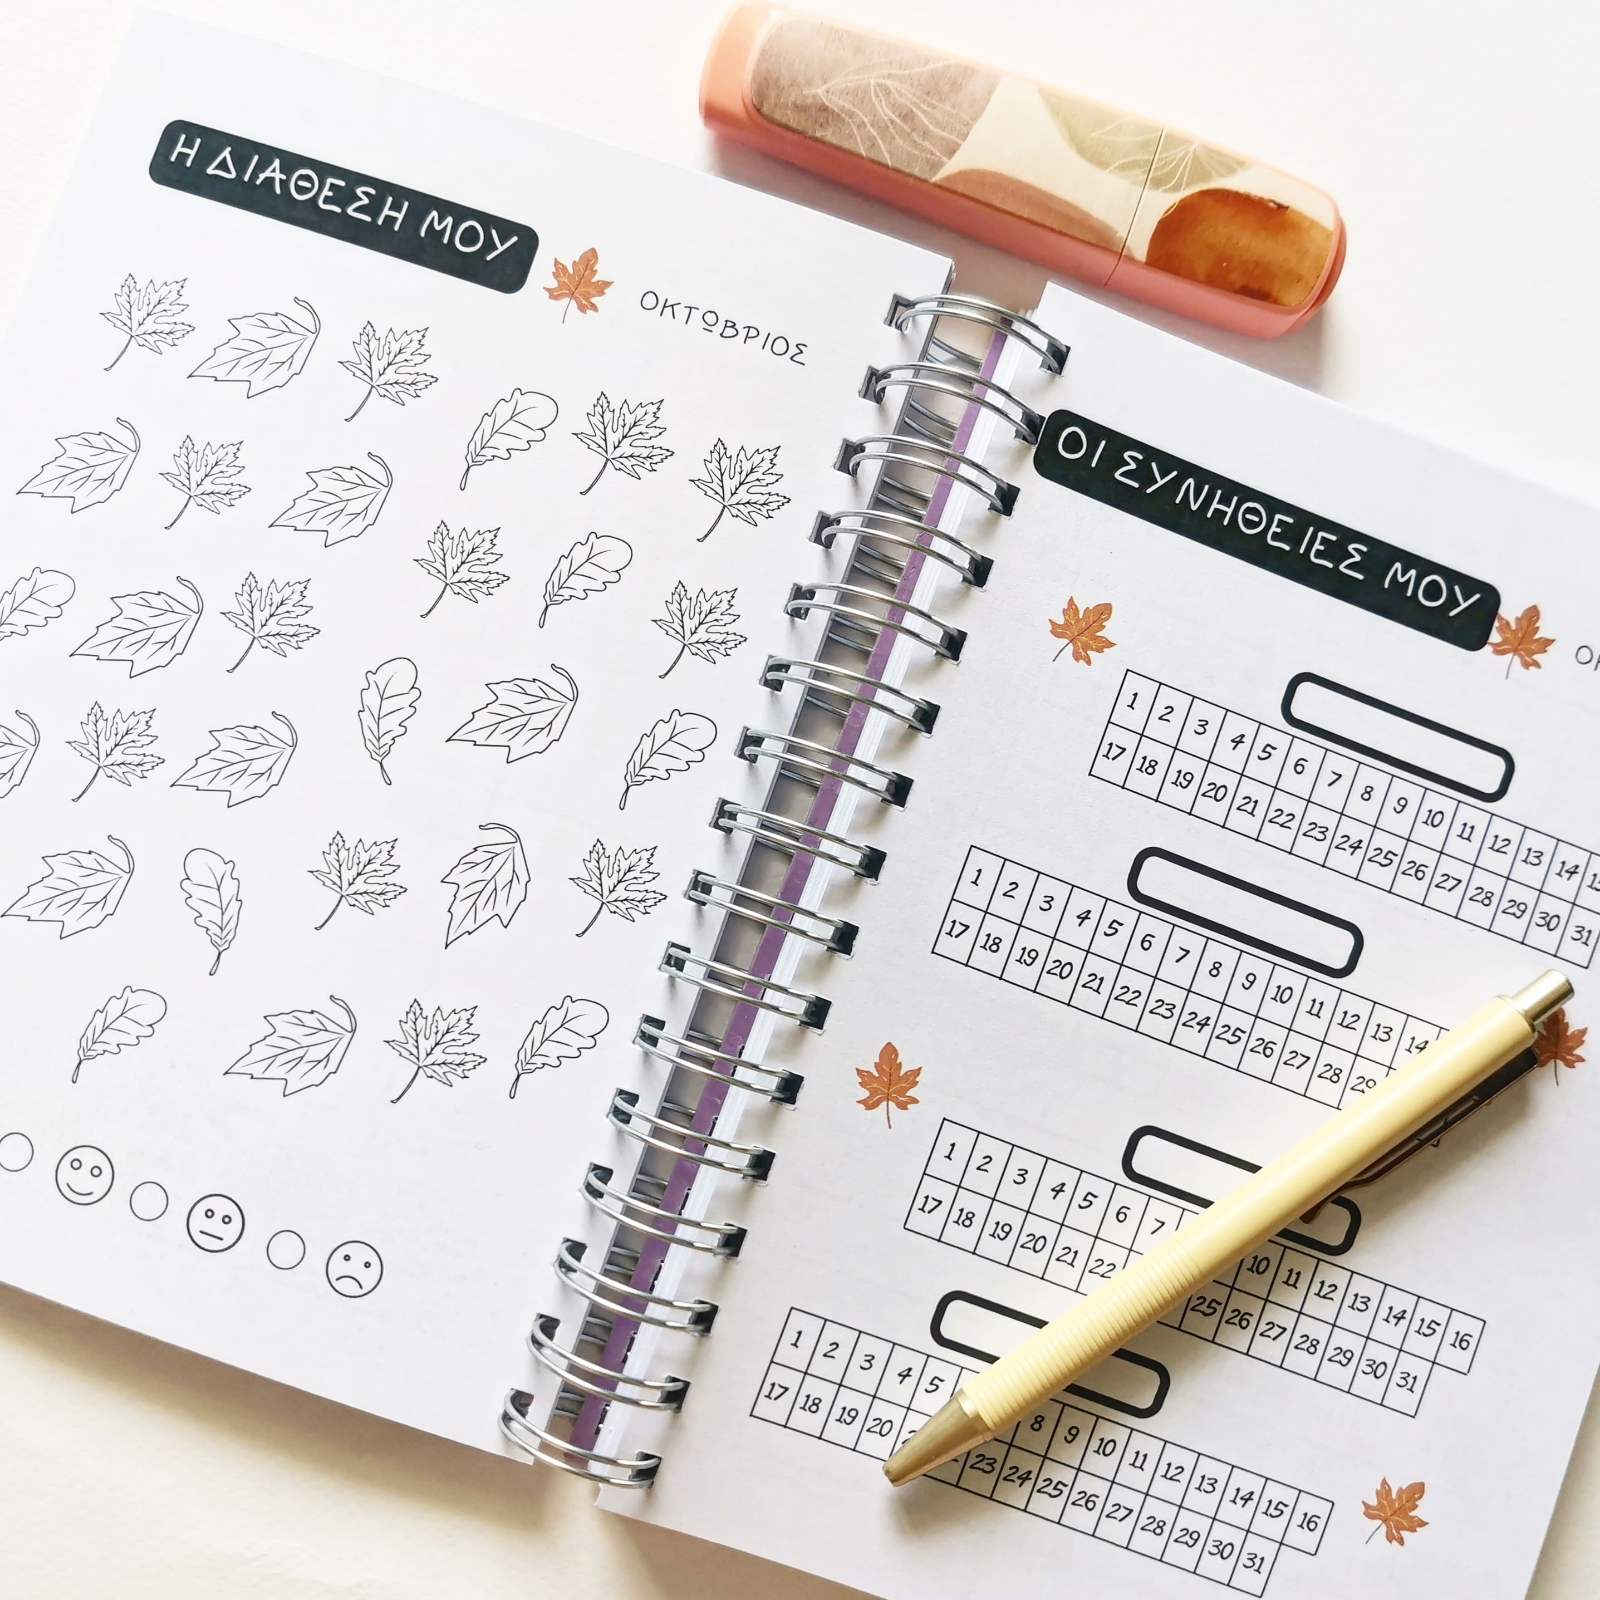 Η ΔΙΑΘΕΣΗ ΜΟΥ
ΟΚΤΩΒΡΙΟΣ
ΟΙ ΣΥΝΗΘΕΙΕΣ ΜΟΥ
1 2 3 4 5 6 7 8 9 10 11 12 13 14
17 18 19 20 21 22 23 24 25 26 27 28 29 30 31
1 2 3 4 5 6 7 8 9 10 11 12 13 14
17 18 19 20 21 22 23 24 25 26 27 28 29
1 2 3 4 5 6 7 10 11 12 13 14 15 16
17 18 19 20 21 22 25 26 27 28 29 30 31
1 2 3 4 5 8 9 10 11 12 13 14 15 16
17 18 19 20 23 24 25 26 27 28 29 30 31